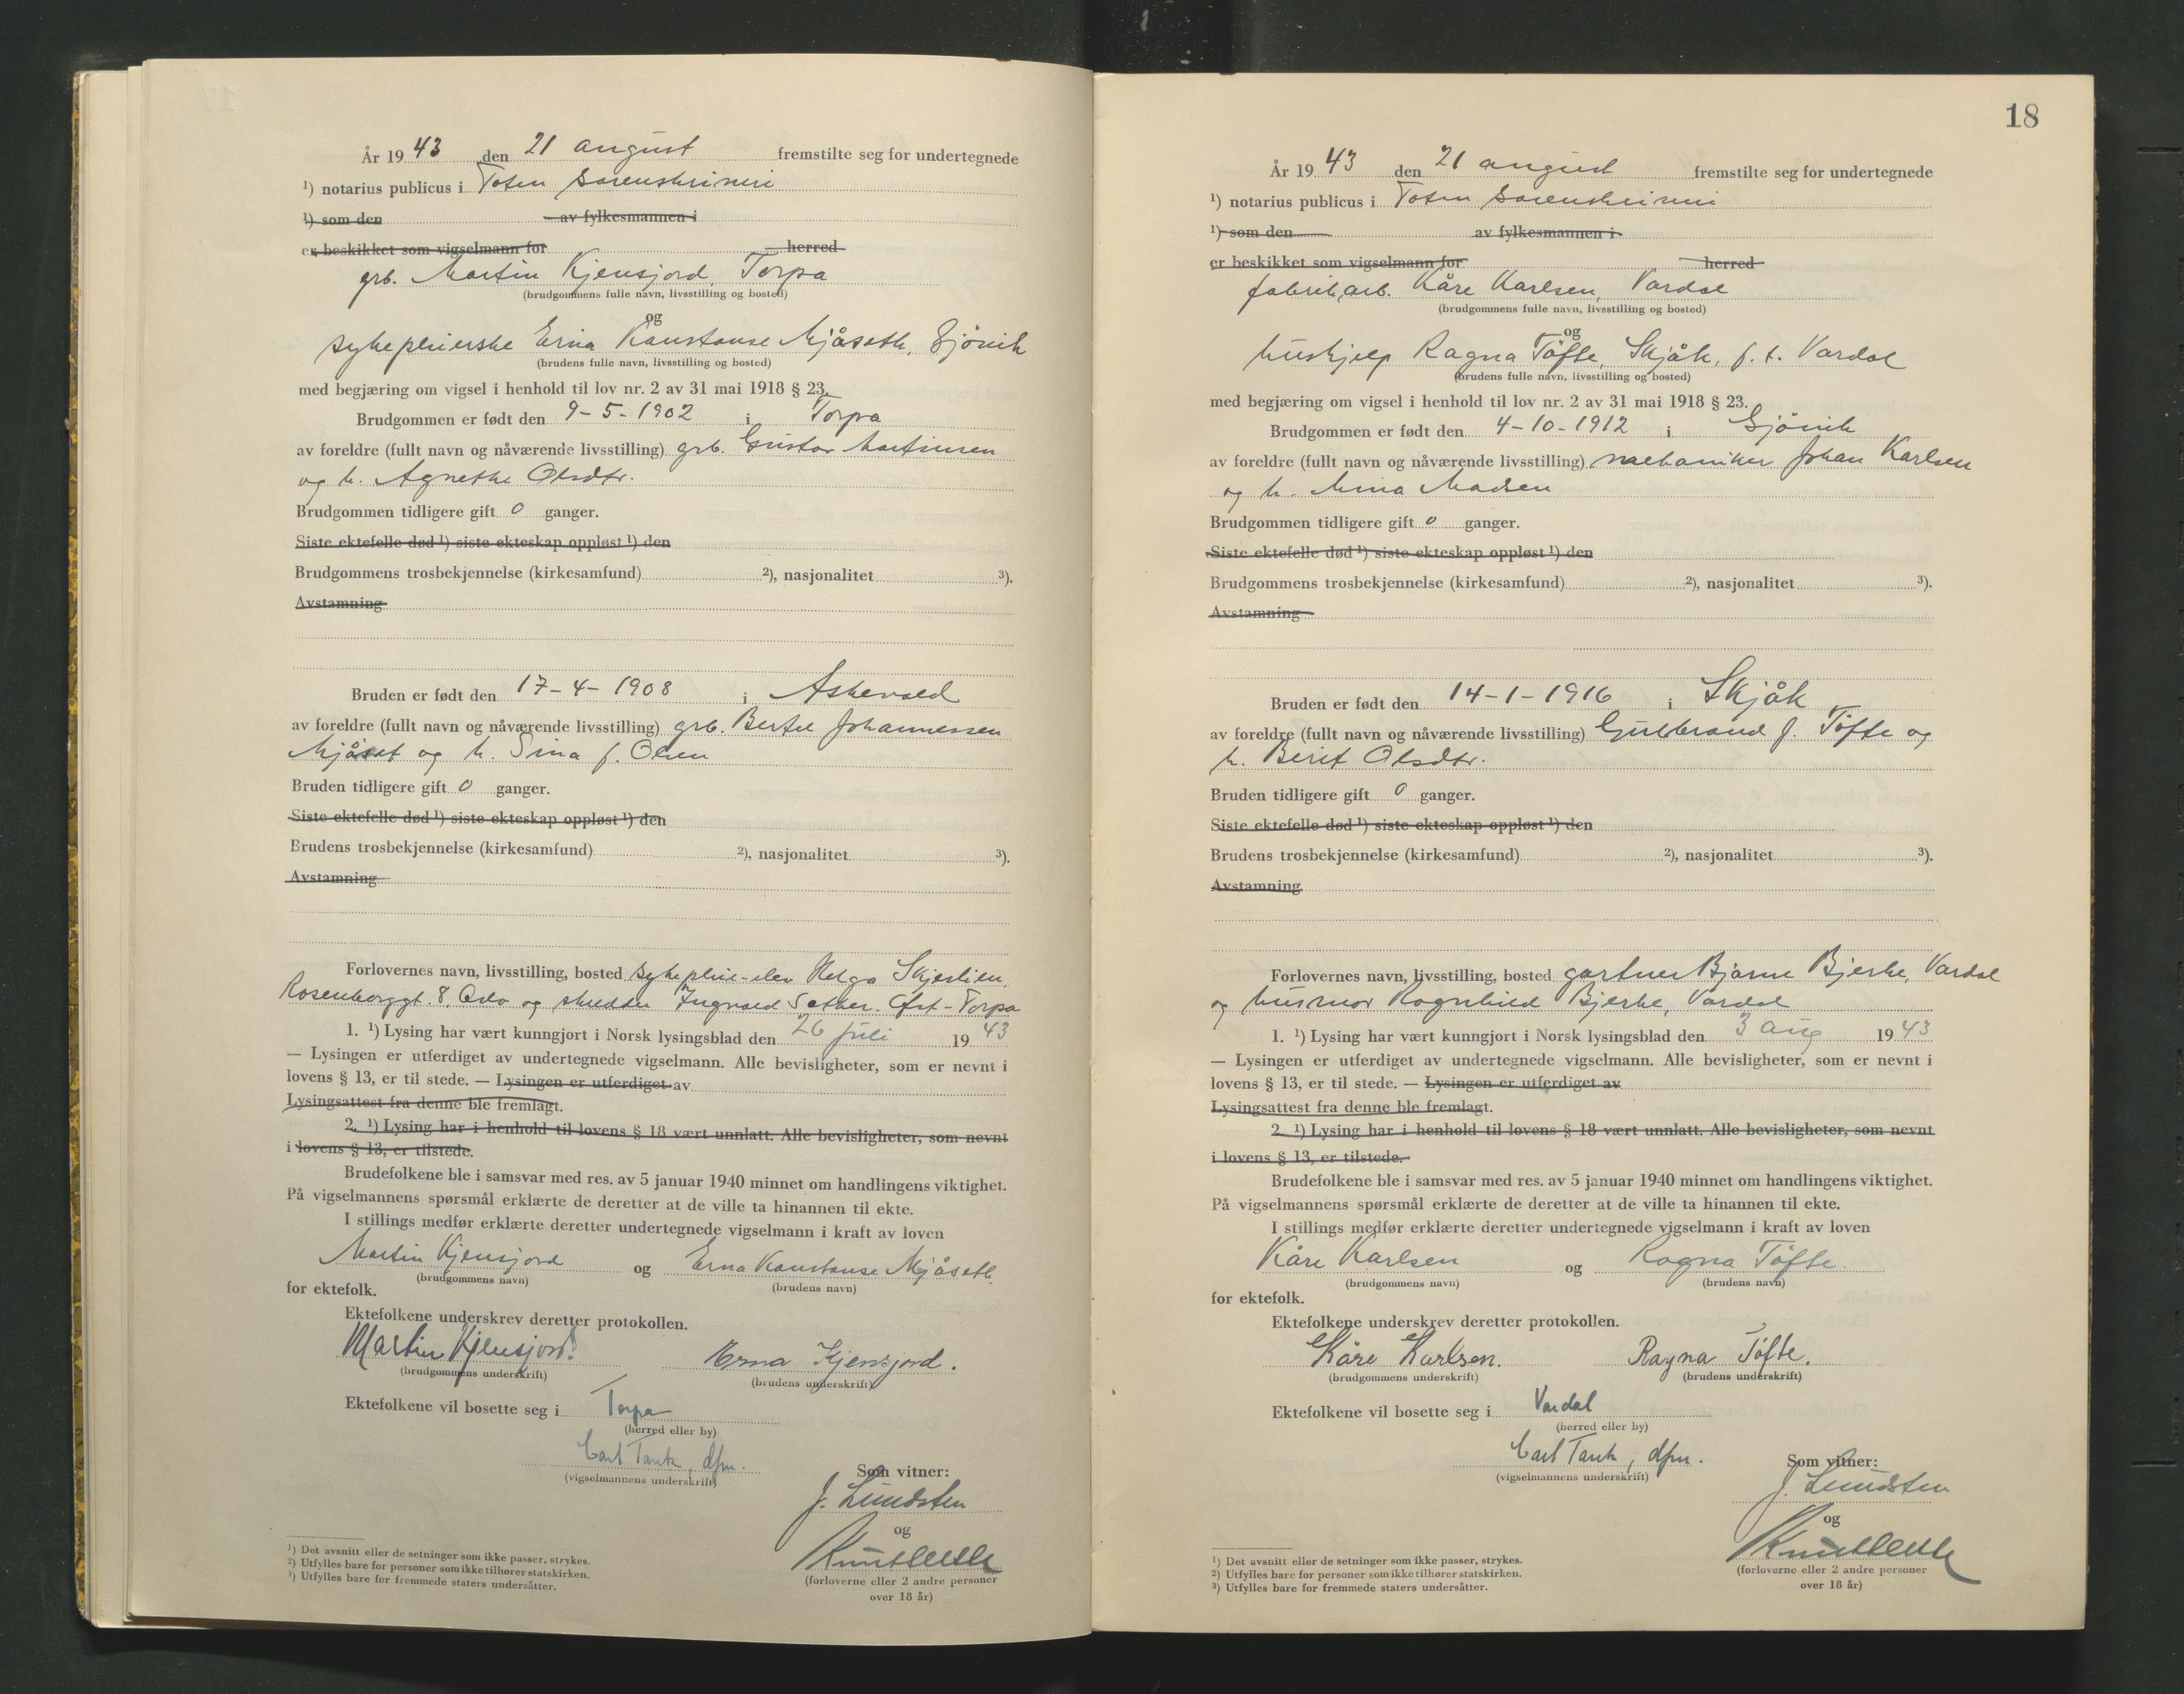 År 1943 den 21 august fremstilte seg for undertegnede
¹) notarius publicus i Toten sorenskriveri
¹) som den av fylkesmannen i
er beskikket som vigselmann for herred
grb. Martin Kjensjord, Torpa
(brudgommens fulle navn, livsstilling og bosted)
og
sykepleierske Erna Konstanse Mjåseth, Gjövik
(brudens fulle navn, livsstilling og bosted)
med begjæring om vigsel i henhold til lov nr. 2 av 31 mai 1918 § 23.
Brudgommen er født den 9-5-1902 i Torpa
av foreldre (fullt navn og nåværende livsstilling) grb. Gustav Martinsen
og h. Agnethe Olsdtr.
Brudgommen tidligere gift 0 ganger.
Siste ektefelle død ¹) siste ekteskap oppløst ¹) den
Brudgommens trosbekjennelse (kirkesamfund) ²), nasjonalitet ³).
Avstamning
Bruden er født den 17-4-1908 i Askevold
av foreldre (fullt navn og nåværende livsstilling) grb. Bertel Johannessen
Mjåset og h. Sina f. Olsen
Bruden tidligere gift 0 ganger.
Siste ektefelle død ¹) siste ekteskap oppløst ¹) den
Brudens trosbekjennelse (kirkesamfund) ²), nasjonalitet ³).
Avstamning
Forlovernes navn, livsstilling, bosted sykepleie-elev Helga Skjerlien,
Rosenborggt. 8, Oslo og skredder Ingvald Sæther. Øst-Torpa
1. ¹) Lysing har vært kunngjort i Norsk lysingsblad den 26 juli 1943
— Lysingen er utferdiget av undertegnede vigselmann. Alle bevisligheter, som er nevnt i
lovens § 13, er til stede. — Lysingen er utferdiget av
Lysingsattest fra denne ble fremlagt.
2. ¹) Lysing har i henhold til lovens § 18 vært unnlatt. Alle bevisligheter, som nevnt
i lovens § 13, er tilstede.
Brudefolkene ble i samsvar med res. av 5 januar 1940 minnet om handlingens viktighet.
På vigselmannens spørsmål erklærte de deretter at de ville ta hinannen til ekte.
I stillings medfør erklærte deretter undertegnede vigselmann i kraft av loven
Martin Kjensjord og Erna Konstanse Mjåseth
(brudgommens navn) (brudens navn)
for ektefolk.
Ektefolkene underskrev deretter protokollen.
Martin Kjensjord. Erna Kjensjord.
(brudgommens underskrift) (brudens underskrift)
Ektefolkene vil bosette seg i Torpa
(herred eller by)
Carl Tank, dfm.
(vigselmannens underskrift)
Som vitner:
J. Lundsten
og
(forloverne eller 2 andre personer
over 18 år)
¹) Det avsnitt eller de setninger som ikke passer, strykes.
²) Utfylles bare for personer som ikke tilhører statskirken.
³) Utfylles bare for fremmede staters undersåtter.
18
År 1943 den 21 august fremstilte seg for undertegnede
¹) notarius publicus i Toten sorenskriveri
¹) som den av fylkesmannen i
er beskikket som vigselmann for herred
fabrikarb. Kåre Karlsen, Vardal
(brudgommens fulle navn, livsstilling og bosted)
og
hushjelp Ragna Töfte, Skjåk, f. t. Vardal
(brudens fulle navn, livsstilling og bosted)
med begjæring om vigsel i henhold til lov nr. 2 av 31 mai 1918 § 23.
Brudgommen er født den 4-10-1912 i Gjövik
av foreldre (fullt navn og nåværende livsstilling) mekaniker Johan Karlsen
og h. Mina Madsen
Brudgommen tidligere gift 0 ganger.
Siste ektefelle død ¹) siste ekteskap oppløst ¹) den
Brudgommens trosbekjennelse (kirkesamfund) ²), nasjonalitet ³).
Avstamning
Bruden er født den 14-1-1916 i Skjåk
av foreldre (fullt navn og nåværende livsstilling) Gulbrand J. Töfte og
h. Berit Olsdtr.
Bruden tidligere gift 0 ganger.
Siste ektefelle død ¹) siste ekteskap oppløst ¹) den
Brudens trosbekjennelse (kirkesamfund) ²), nasjonalitet ³).
Avstamning
Forlovernes navn, livsstilling, bosted gartner Bjarne Bjerke, Vardal
og husmor Ragnhild Bjerke, Vardal
1. ¹) Lysing har vært kunngjort i Norsk lysingsblad den 3 aug 1943
— Lysingen er utferdiget av undertegnede vigselmann. Alle bevisligheter, som er nevnt i
lovens § 13, er til stede. — Lysingen er utferdiget av
Lysingsattest fra denne ble fremlagt.
2. ¹) Lysing har i henhold til lovens § 18 vært unnlatt. Alle bevisligheter, som nevnt
i lovens § 13, er tilstede.
Brudefolkene ble i samsvar med res. av 5 januar 1940 minnet om handlingens viktighet.
På vigselmannens spørsmål erklærte de deretter at de ville ta hinannen til ekte.
I stillings medfør erklærte deretter undertegnede vigselmann i kraft av loven
Kåre Karlsen og Ragna Töfte.
(brudgommens navn) (brudens navn)
for ektefolk.
Ektefolkene underskrev deretter protokollen.
Kåre Karlsen. Ragna Töfte.
(brudgommens underskrift) (brudens underskrift)
Ektefolkene vil bosette seg i Vardal
(herred eller by)
Carl Tank, dfm.
(vigselmannens underskrift)
Som vitner:
J. Lundsten
og
(forloverne eller 2 andre personer
over 18 år)
¹) Det avsnitt eller de setninger som ikke passer, strykes.
²) Utfylles bare for personer som ikke tilhører statskirken.
³) Utfylles bare for fremmede staters undersåtter.